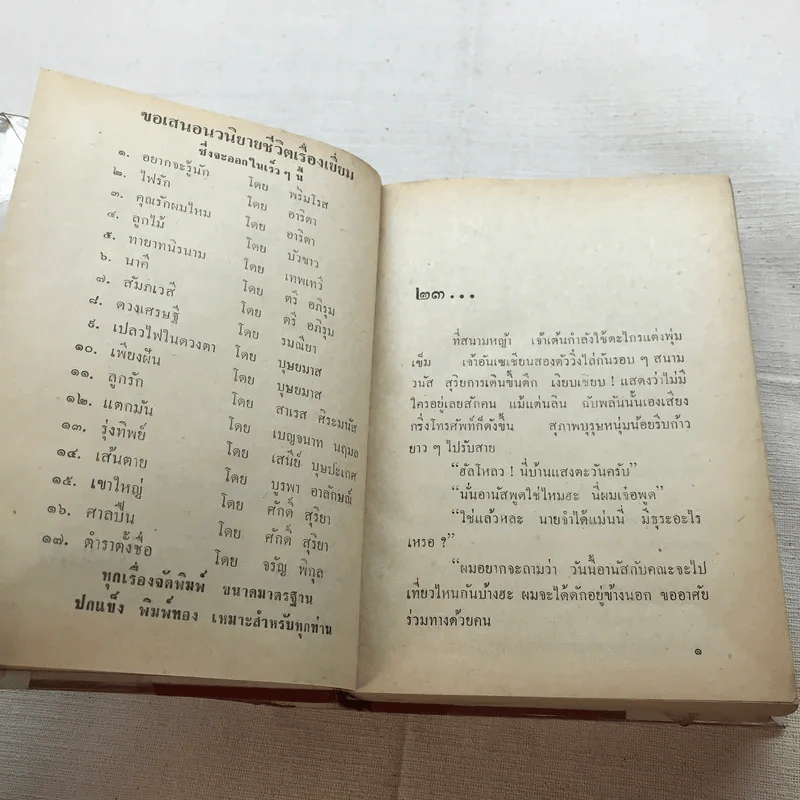 ขอเสนอนวนิยายชีวิตเรื่องเยี่ยม
ซึ่งจะออกในเร็ว ๆ นี้
๑. อยากจะรู้นัก โดย พริมโรส
๒. ไฟรัก โดย อาริตา
๓. คุณรักผมไหม โดย อาริตา
๔. ลูกไม้ โดย บัวขาว
๕. ทายาทนิรนาม โดย เทพเทวี
๖. นาคี โดย ตรี อภิรุม
๗. สัมภเวสี โดย ตรี อภิรุม
๘. ดวงเศรษฐี โดย รมณียา
๙. เปลวไฟในดวงตา โดย บุษยมาส
๑๐. เพียงฝัน โดย บุษยมาส
๑๑. ลูกรัก โดย สาเรส ศิระมนัส
๑๒. แตกมัน โดย เบญจนาท นฤมล
๑๓. รุ่งทิพย์ โดย เสนีย์ บุษปะเกศ
๑๔. เส้นตาย โดย บูรพา อาลักษณ์
๑๕. เขาใหญ่ โดย ศักดิ์ สุริยา
๑๖. ศาลปืน โดย ศักดิ์ สุริยา
๑๗. ตำราตั้งชื่อ โดย จรัญ พิกุล
ทุกเรื่องจัดพิมพ์ ขนาดมาตรฐาน
ปกแข็ง พิมพ์ทอง เหมาะสำหรับทุกท่าน
๒๓...
ที่สนามหญ้า เจ้าเด้นกำลังใช้ตะไกรแต่งพุ่ม
เข็ม เจ้าอันเซเชียนสองตัววิ่งไล่กันรอบ ๆ สนาม
วนัส สุริยการเดินขึ้นตึก เงียบเชียบ ! แสดงว่าไม่มี
ใครอยู่เลยสักคน แม้แต่นลิน ฉับพลันนั้นเองเสียง
กริ่งโทรศัพท์ก็ดังขึ้น สุภาพบุรุษหนุ่มน้อยรีบก้าว
ยาว ๆ ไปรับสาย
“ฮัลโหลว ! นี่บ้านแสงตะวันครับ”
“นั่นอานัสพูดใช่ไหมฮะ นี่ผมเจ๋อพูด”
“ใช่แล้วหละ นายจำได้แม่นนี่ มีธุระอะไร
เหรอ ?”
“ผมอยากจะถามว่า วันนี้อานัสกับคณะจะไป
เที่ยวไหนกันบ้างฮะ ผมจะได้ดักอยู่ข้างนอก ขออาศัย
ร่วมทางด้วยคน
๑